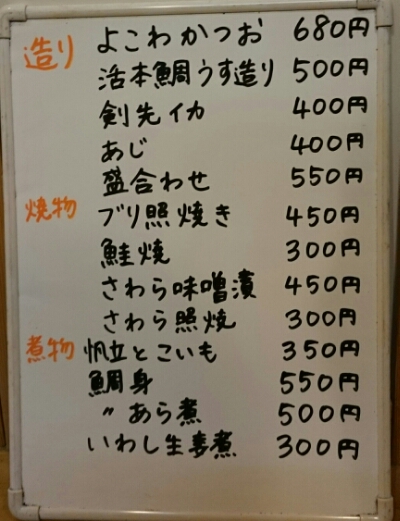 造り よこわかつお 680円
活本鯛うす造り 500円
剣先イカ 400円
あじ 400円
盛合わせ 550円
焼物 ブリ照焼き 450円
鮭焼 300円
さわら味噌漬 450円
さわら照焼 300円
煮物 帆立とこいも 350円
鯛身 550円
〃あら煮 500円
いわし生姜煮 300円